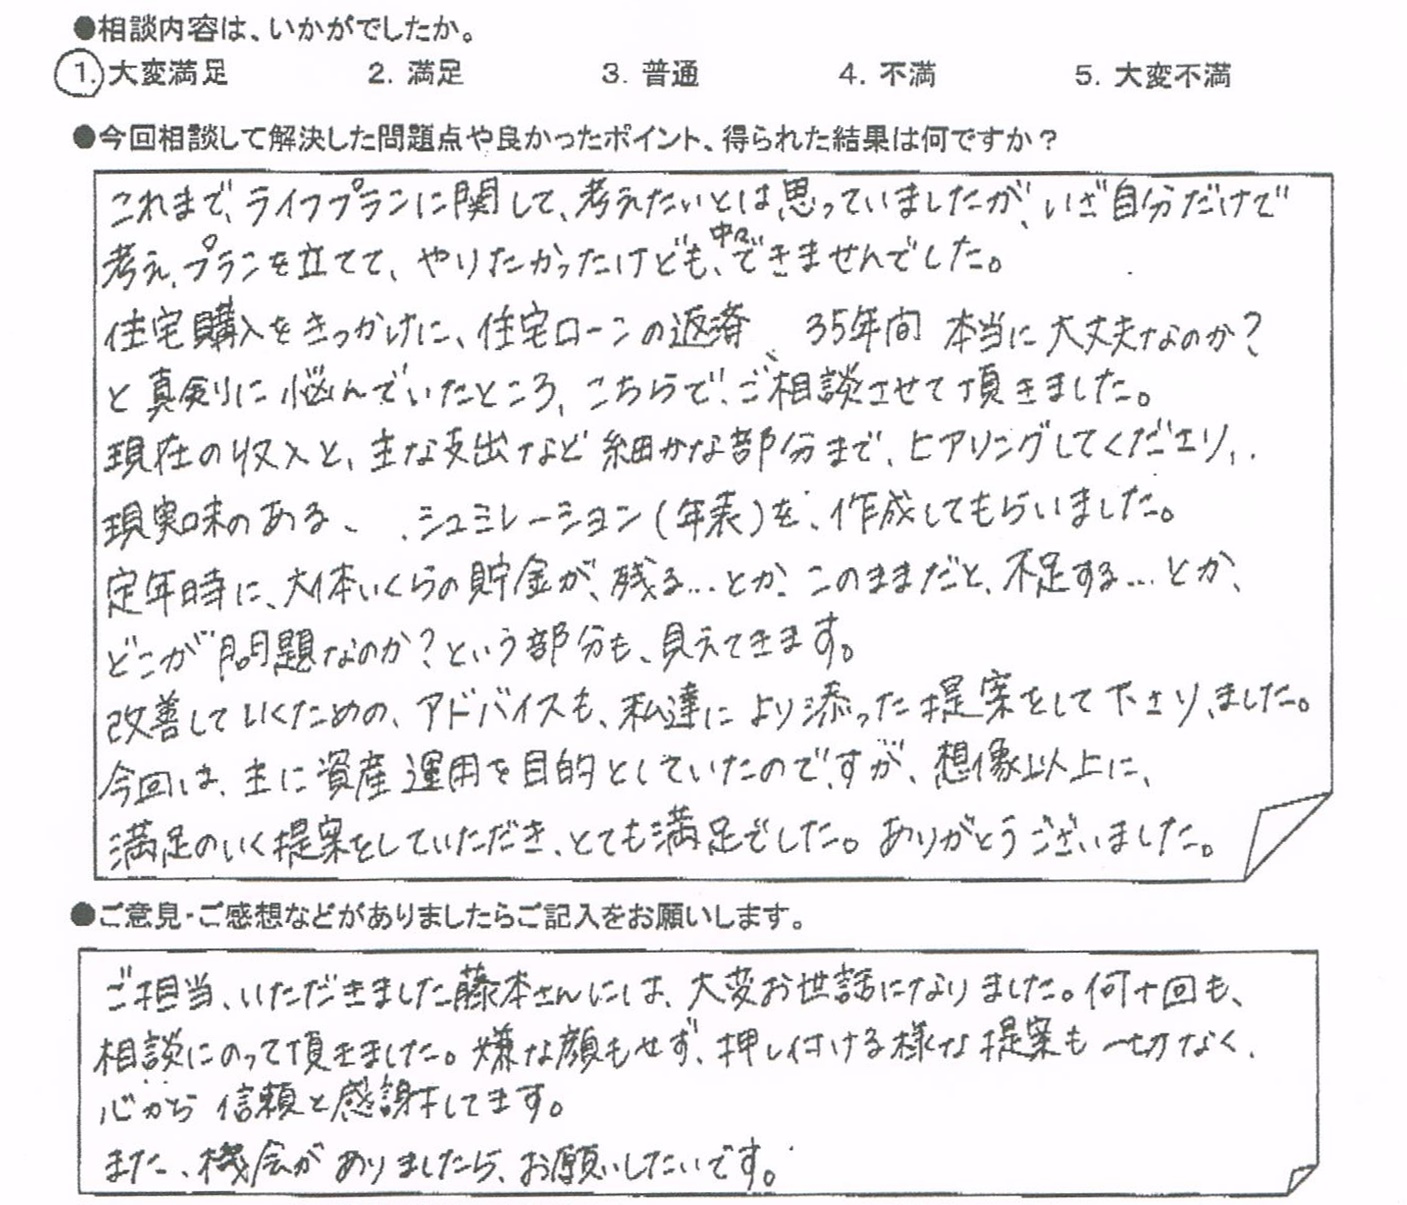 ●相談内容は、いかがでしたか。
1. 大変満足 2. 満足 3. 普通 4. 不満 5. 大変不満
●今回相談して解決した問題点や良かったポイント、得られた結果は何ですか？
これまで、ライフプランに関して、考えたいとは思っていましたが、いざ自分だけで
考え、プランを立てて、やりたかったけども、中々できませんでした。
住宅購入をきっかけに、住宅ローンの返済、35年間 本当に大丈夫なのか？
と真剣に悩んでいたところ、こちらで、ご相談させて頂きました。
現在の収入と、主な支出など細かな部分まで、ヒアリングしてくださり、
現実味のある、シュミレーション(年表)を、作成してもらいました。
定年時に、大体いくらの貯金が、残る…とか、このままだと、不足する…とか、
どこが問題なのか？という部分も、見えてきます。
改善していくための、アドバイスも、私達により添った提案をして下さり、ました。
今回は、主に資産運用を目的としていたのですが、想像以上に、
満足のいく提案をしていただき、とても満足でした。ありがとうございました。
●ご意見・ご感想などがありましたらご記入をお願いします。
ご担当、いただきました藤本さんには、大変お世話になりました。何十回も、
相談にのって頂きました。嫌な顔もせず、押し付ける様な提案も一切なく、
心から 信頼と感謝してます。
また、機会がありましたら、お願いしたいです。